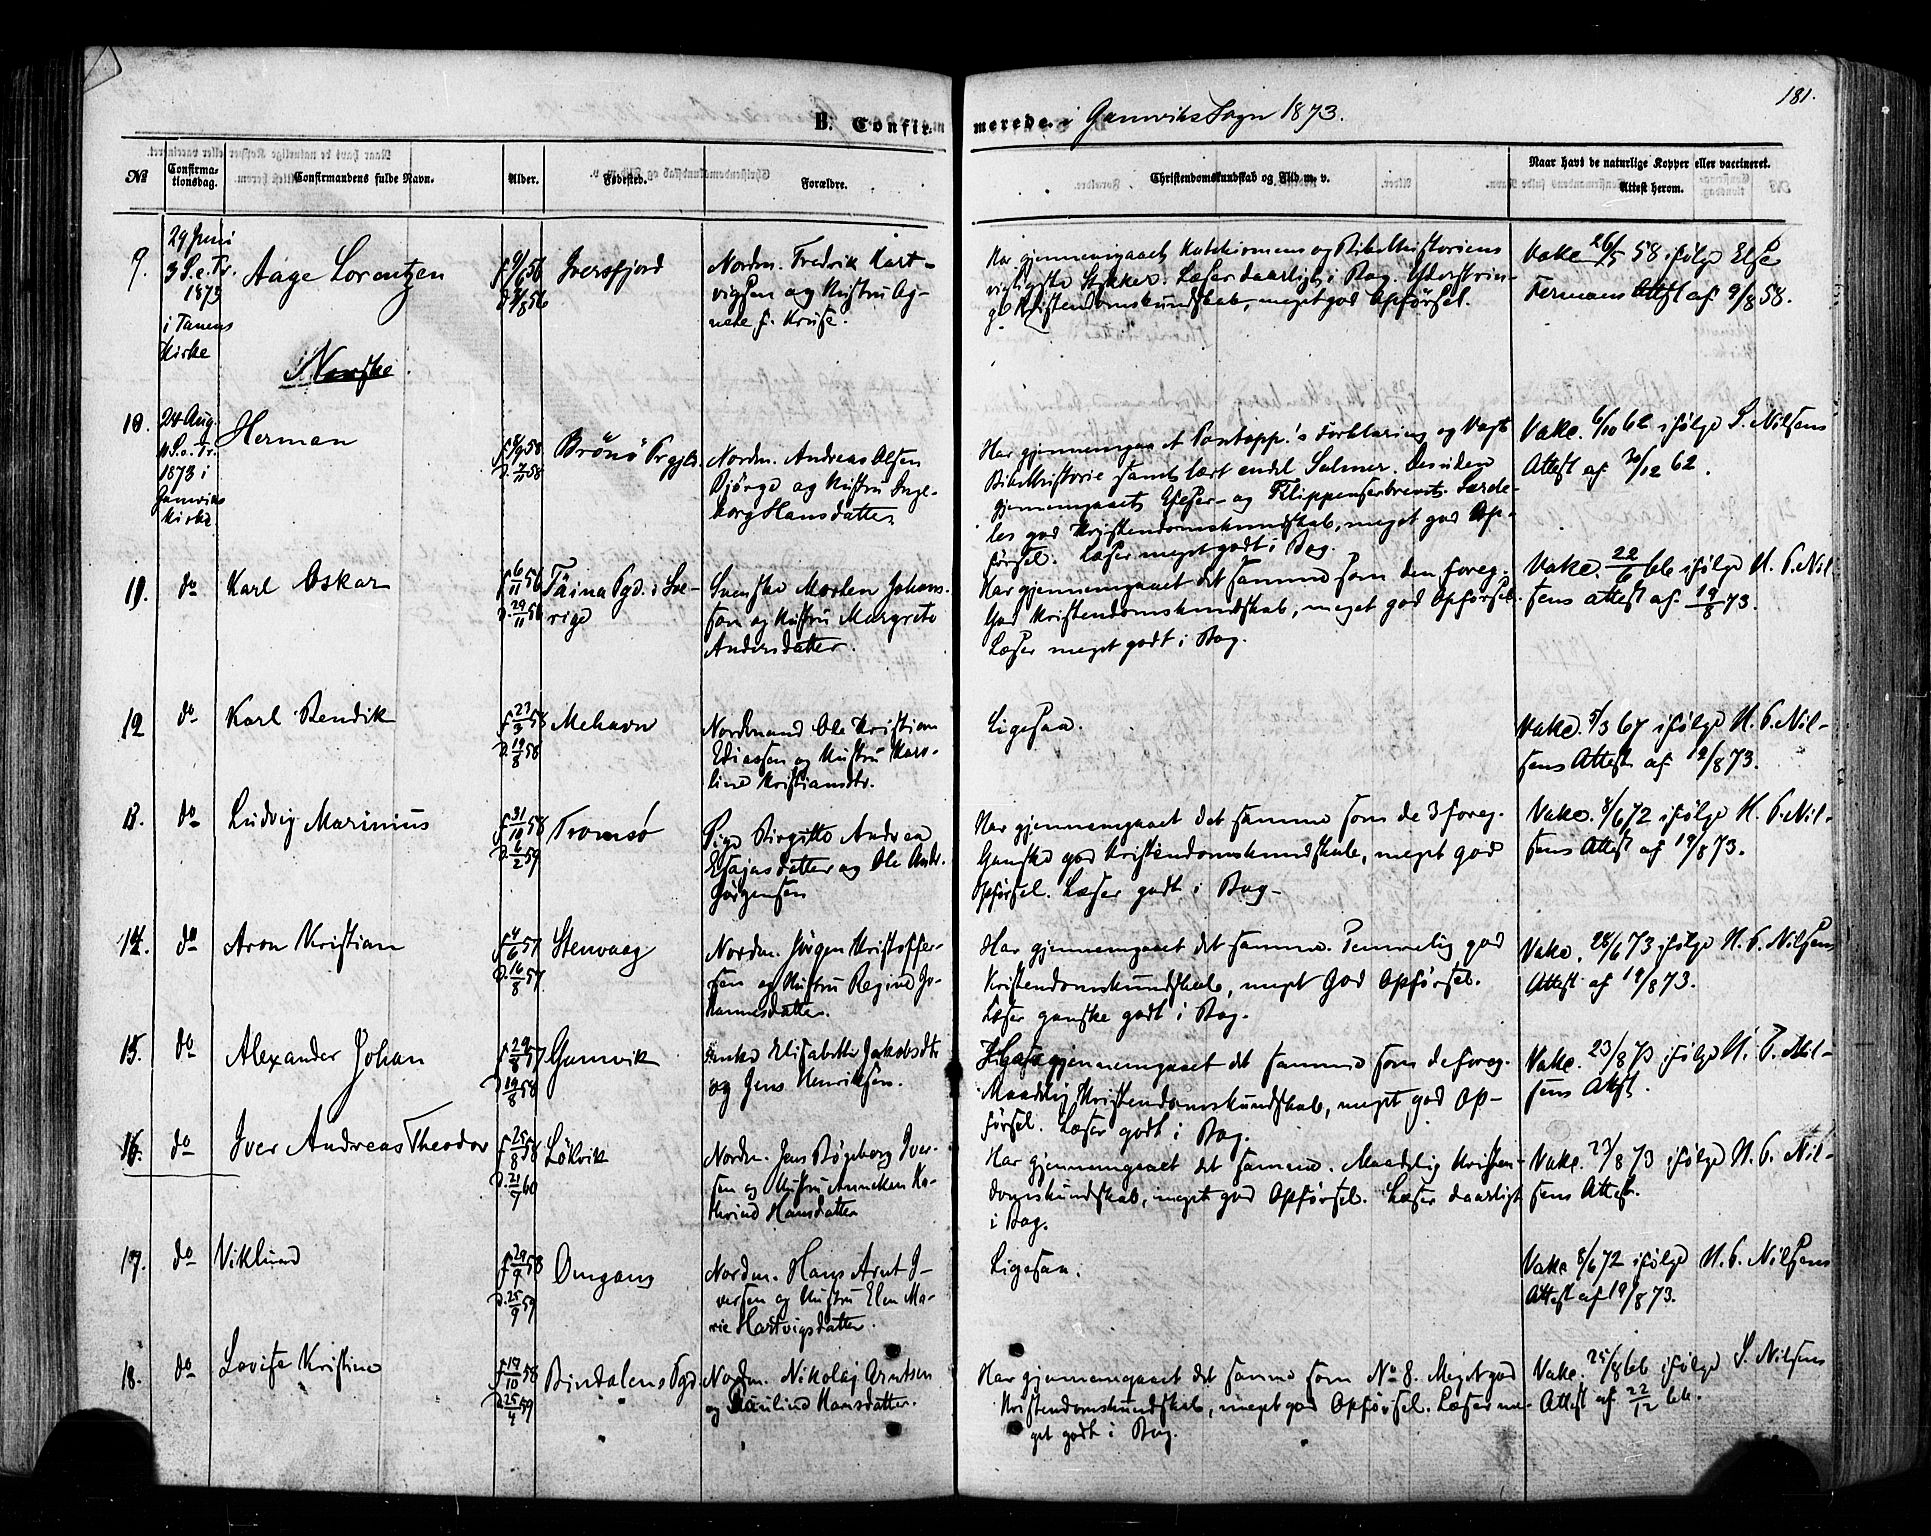 181.
B. Confir merede i Gamviks Sogn 1873.
No
Confirmationsdag.
Confirmandens fulde Navn.
Alder.
Fødested.
Forældre.
Christendomskundskab og Flid m. v.
Naar havt de naturlige Kopper eller vaccineret.
Attest herom.
9.
29 Juni
3 S. e. Tr.
1873
i Tanens
Kirke
Aage Lorentzen
Iversfjord
Nordm. Fredrik Hart-
vigsen og Hustru Ag-
nete f. Kruse.
Har gjennemgaaet Katekismens og Bibelhistoriens
vigtigste Stykker. Læser daarligt i Bog. Yderst rin-
ge Kristendomskundskab, meget god Opførsel.
Vakc. 26/5 58 ifølge Else
Fermans Attest af 9/8 58.
i Norske.
10.
24 Aug.
11 S. e. Tr.
1873 i
Gamviks
Kirke
Herman
Brönö Prgjld.
Nordm. Andreas Olsen
Bjørge og Hustru Inge-
borg Hansdatter
Har gjennemgaaet Pontopp.'s Forklaring og Vogts
Bibelhistorie samt lært endel Salmer. Desuden
gjennemgaaet Efeser- og Filippenserbrevet. Særde-
les god Kristendomskundskab, meget god Op-
førsel. Læser meget godt i Bog.
Vakc. 6/10 62 ifølge S. Nilsens
Attest af 30/12 62.
11.
do
Karl Oskar
f. 6/11 56
d. 29/11 56
Täina Pgd. i Sve-
rige
Svenske Morten Johans-
son og Hustru Margrete
Andersdatter.
Har gjennemgaaet det samme som den foreg.
God Kristendomskundskab, meget god Opførsel.
Læser meget godt i Bog.
Vakc. 22/6 66 ifølge H. P. Nil-
sens attest af 19/8 73.
12
do
Karl Bendik
f. 27/3 58
d. 19/8 58
Mehavn
Nordmand Ole Kristian
Eliassen og Hustru Karo-
line Kristiansdtr.
Ligesaa.
Vakc. 5/3 67 ifølge H. P. Nil-
sens Attest af 19/8 73.
13.
do
Ludvig Marinius
f. 31/10 58
d. 6/2 59
Tromsø
Pige Birgitte Andrea
Esajasdatter og Ole Andr.
Jørgensen
Har gjennemgaaet det samme som de 3 foreg.
Ganske god Kristendomskundskab, meget god
Opførsel. Læser godt i Bog.
Vakc. 8/6 72 ifølge H. P. Nil-
sens Attest af 19/8 73.
14.
do
Aron Kristian
f. 4/6 57
d. 16/8 57
Stenvaag
Nordm. Jörgen Kristoffer-
sen og Hustru Regine Jo-
hannesdatter.
Har gjennemgaaet det samme. Temmelig god
Kristendomskundskab, meget God Opførsel.
Læser ganske godt i Bog.
Vakc. 28/6 73 ifølge H. P. Nilsens
Attest af 19/8 73.
15.
do
Alexander Johan
f. 29/8 57
d. 19/8 58
Gamvik
Enke Elisabeth Jakobsdtr.
og Jens Henriksen.
Har gjennemgaaet det samme som de foreg.
Maadelig Kristendomskundskab, meget god Op-
førsel. Læser godt i Bog.
Vakc. 23/8 73 ifølge H. P. Nil-
sens Attest.
16.
do
Iver Andreas Theodor
f. 25/8 58
d. 21/7 60
Lökvik
Nordm. Jens Bøgeberg Iver-
sen og Hustru Anneken Ka-
thrine Hansdatter
Har gjennemgaaet det samme. Maadelig Kristen-
domskundskab, meget god Opførsel. Læser daarligt
i Bog.
Vakc. 23/8 73 ifølge H. P. Nil-
sens Attest.
17.
do
Viklund
f. 29/7 58
d. 25/9 59
Omgang
Nordm. Hans Arnt I-
versen og Hustru Elen Ma-
rie Hartvigsdatter.
Ligesaa.
Vakc. 8/6 72 ifølge H. P. Nilsens
Attest af 19/8 73.
18.
do
Lovise Kristine
f. 17/10 58
d. 25/4 59
Bindalens Pgd.
Nordm. Nikolaj Arntsen
og Pauline Hansdatter.
Har gjennemgaaet det samme som No 8. Meget god
Kristendomskundskab, meget god Opførsel. Læser me-
get godt i Bog.
Vakc. 25/8 66 ifølge S. Nilsens
Attest af 22/12 66.